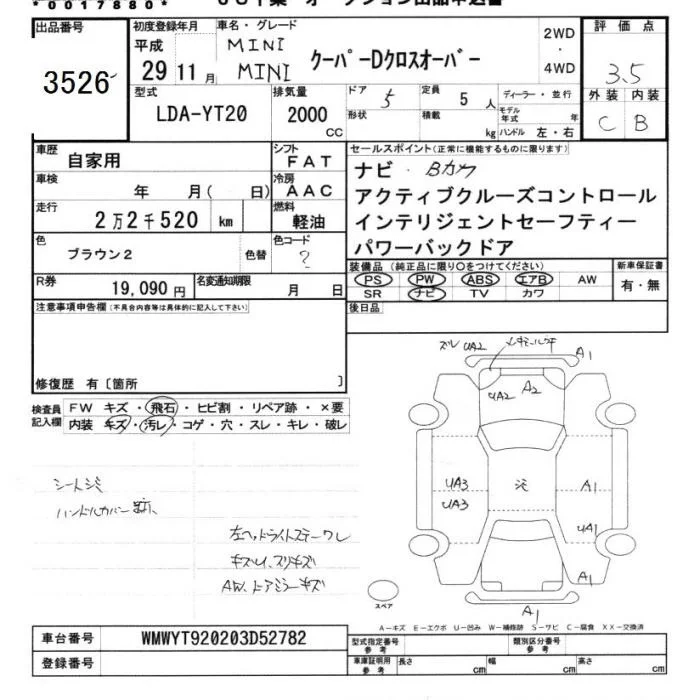 *0017880*
出品番号
3526
初度登録年月
平成
29 11月
車名・グレード
MINI
MINI クーパーDクロスオーバー
2WD
・
4WD
評価点
3.5
外装 内装
C B
型式
LDA-YT20
排気量
2000
CC
ドア 5
形状
定員
5人
積載
kg
ディーラー・並行
モデル年式 年
ハンドル 左・右
車歴
自家用
シフト
FAT
車検
年 月( 日)
冷房
AAC
走行
2万2千520 km
燃料
軽油
色
ブラウン2
色替
色コード
?
R券
19,090円
名変通知期限
月 日
セールスポイント(正常に機能するものに限ります)
ナビ・Bカメ
アクティブクルーズコントロール
インテリジェントセーフティー
パワーバックドア
装備品 (純正品に限り○をつけてください)
PS PW ABS エアB AW
SR ナビ TV カワ
新車保証書
有・無
後日品
注意事項申告欄(不具合内容等は具体的に記入して下さい)
修復歴 有〔箇所 〕
検査員
記入欄
FW キズ・飛石・ヒビ割・リペア跡・×要
内装 キズ・汚レ・コゲ・穴・スレ・キレ・破レ
シートシミ
ハンドルカバー跡
左ヘッドライトステーワレ
キズ
スリキズ
AW、ドアミラーキズ
ズレ UA2
A1
UA2
A2
UA3
UA3
A1
UA1
A1
スペア
A-キズ E-エクボ U-凹み W-補修跡 S-サビ C-腐食 XX-交換済
車台番号
WMWYT920203D52782
登録番号
型式指定番号
参考
類別区分番号
参考
車庫証明用
参考
長さ cm
幅 cm
高さ cm